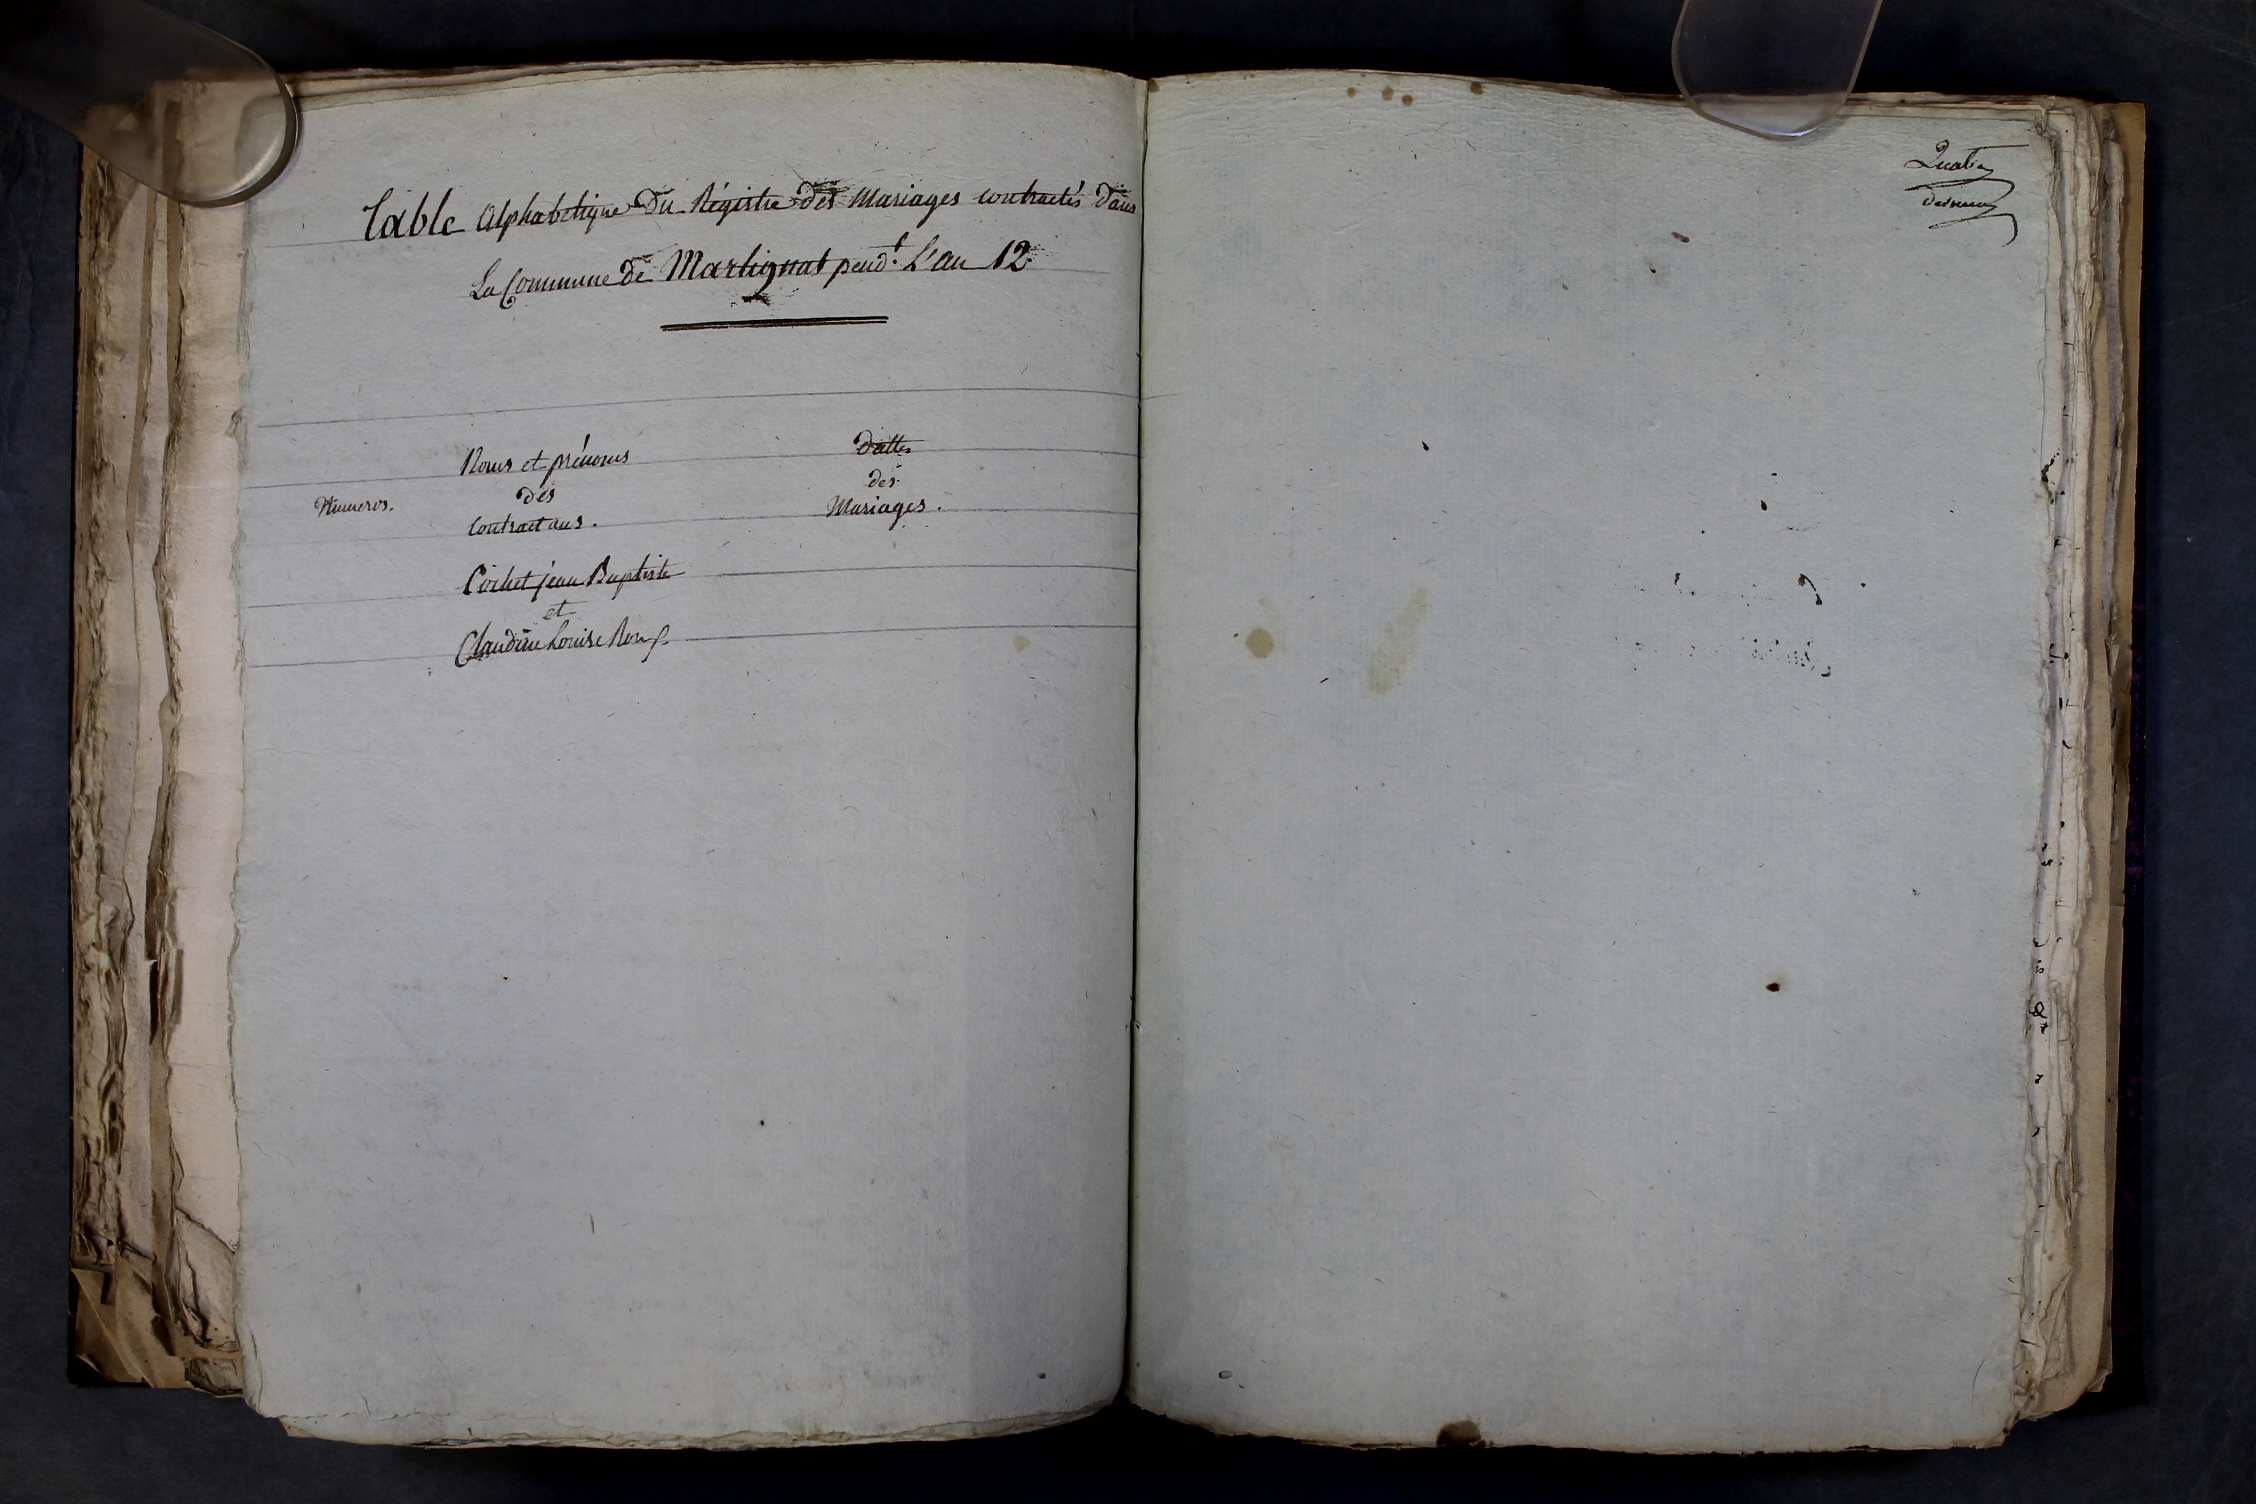 Table Alphabétique du Régistre des Mariages contractés dans
La Commune de Martignat pend.t L'an 12.
Numeros.
Noms et prénoms
des
Contractans.
dattes
des
Mariages.
Cochet jean Baptiste
et
Claudine Louise